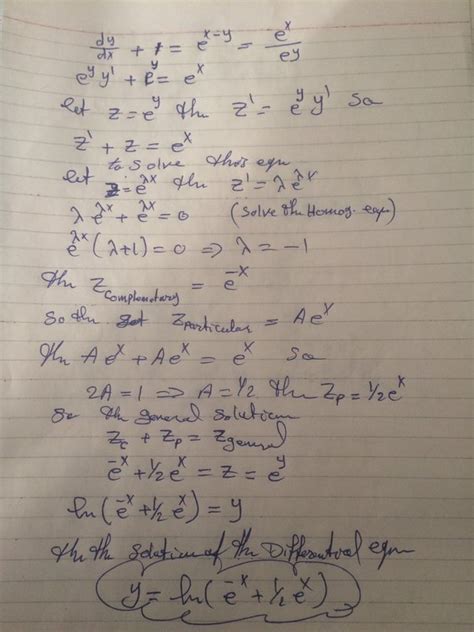 dy/dx + 1 = e^(x-y) = e^x/ey
e^y y' + e^y = e^x
let z = e^y the z' = e^y y' so
z' + z = e^x
to solve this equ
let z = e^(λx) the z' = λ e^(λx)
λ e^(λx) + e^(λx) = 0 (solve the Homog. equ)
e^(λx) (λ+1) = 0 ⇒ λ = -1
the z_complementary = e^(-x)
so the z_particular = A e^x
the A e^x + A e^x = e^x so
2A = 1 ⇒ A = 1/2 the z_p = 1/2 e^x
so the general solution
z_c + z_p = z_general
e^(-x) + 1/2 e^x = z = e^y
ln(e^(-x) + 1/2 e^x) = y
the the solution of the Differential equ
y = ln(e^(-x) + 1/2 e^x)